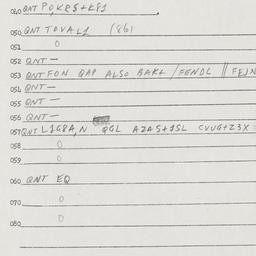 040 QNT POKRS+KP1
050 QNT TOVAL1 (86)
051 0
052 QNT —
053 QNT FON QAP ALSO BAKL / FENDL || FEJN
054 QNT —
055 QNT —
056 QNT —
057 QNT L1G8A,N QGL AZAS+1SL CVUG+Z3X
058 0
059 0
060 QNT EQ
070 0
080 0